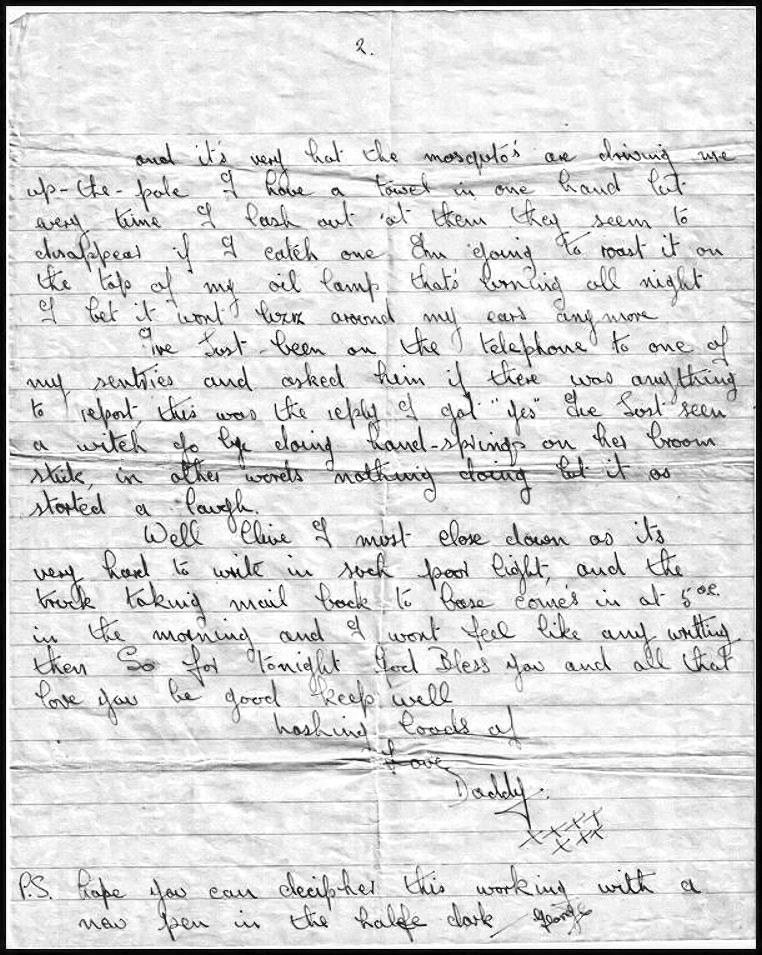 2.
and it's very hot the mosquto's are driving me
up-the-pole I have a towel in one hand but
every time I lash out at them they seem to
disappear if I catch one I'm going to roast it on
the top of my oil lamp that's burning all night
I bet it wont buzz around my ears anymore
I've Just been on the telephone to one of
my sentries and asked him if there was anything
to report, this was the reply I got "yes" I've Just seen
a witch go bye doing hand-springs on her broom
stick, in other words nothing doing but it as
started a laugh.
Well Clive I must close down as its
very hard to write in such poor light, and the
truck taking mail back to base come's in at 5 oc.
in the morning and I wont feel like any writting
then So for tonight God Bless you and all that
love you be good keep well
lashing loads of
Love
Daddy.
x x x x
x x x
P.S. hope you can decipher this working with a
new pen in the halfe dark George